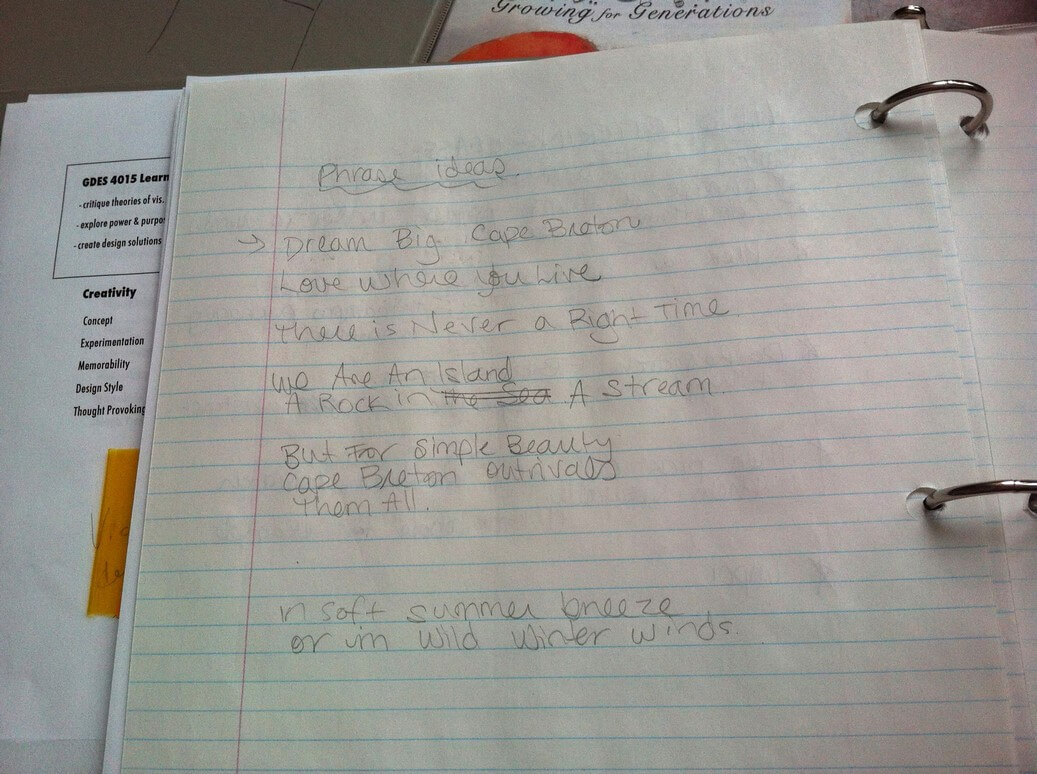 Growing for Generations
GDES 4015 Learn
- critique theories of vis.
- explore power & purpo
- create design solutions
Creativity
Concept
Experimentation
Memorability
Design Style
Thought Provoking
Phrase ideas.
→ Dream Big Cape Breton
Love where you Live
There is Never a Right Time
We Are An Island
A Rock in the Sea A Stream
But For Simple Beauty
Cape Breton outrivals
Them All.
in soft summer breeze
or in wild winter winds.